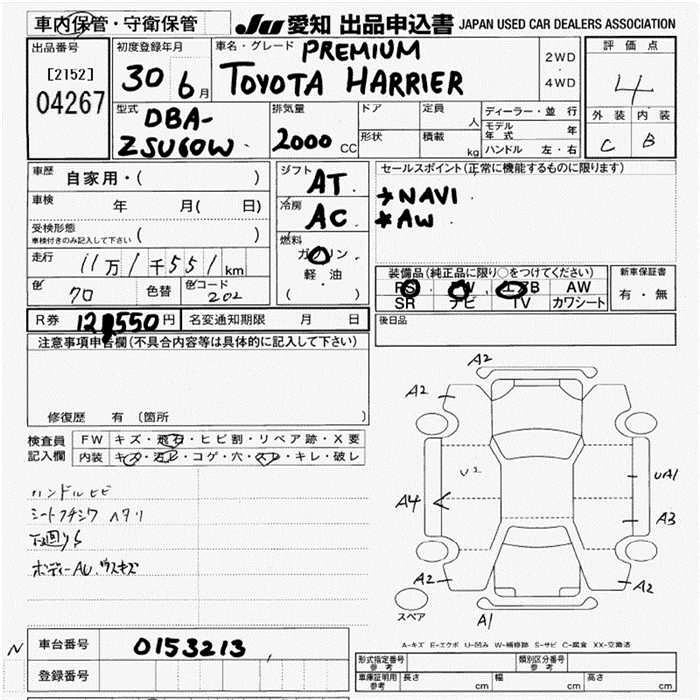 車内保管・守衛保管
JU 愛知 出品申込書 JAPAN USED CAR DEALERS ASSOCIATION
出品番号
[2152]
04267
初度登録年月
30 6月
車名・グレード PREMIUM
TOYOTA HARRIER
2WD
・
4WD
評価点
4
外装 内装
C B
型式 DBA-
ZSU60W
排気量
2000 CC
ドア
形状
定員
人
積載
kg
ディーラー・並行
モデル年式 年
ハンドル 左・右
車歴 自家用・( )
車検 年 月( 日)
受検形態
車検付きのみ記入して下さい ( )
走行 11万1千551km
色 70 色替 色コード 202
シフト AT
冷房 AC
燃料
ガソリン
・
軽・油
( )
セールスポイント(正常に機能するものに限ります)
→NAVI
*AW
装備品(純正品に限り○をつけてください)
PS PW エアB AW
SR ナビ TV カワシート
新車保証書
有・無
R券 12,550円 名変通知期限 月 日
後日品
注意事項申告欄(不具合内容等は具体的に記入して下さい)
修復歴 有(箇所 )
検査員
記入欄
FW キズ・飛石・ヒビ割・リペア跡・X要
内装 キズ・汚レ・コゲ・穴・スレ・キレ・破レ
ハンドルヒビ
シートフチシワ ヘタリ
下回りS
ボディーAU.ウスキズ
A2
A2
U2
UA1
A4
A3
A2
A2
A1
スペア
A-キズ E-エクボ U-凹み W-補修跡 S-サビ C-腐食 XX-交換済
N 車台番号 0153213
登録番号
形式指定番号
参考
類別区分番号
参考
車庫証明用
参考
長さ cm 幅 cm 高さ cm